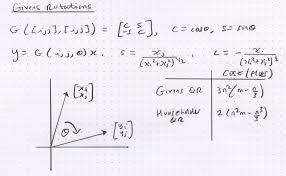 Givens Rotations
G([i,j],[i,j]) = [c s; -s c], c = cosθ, s = sinθ
y = G(i,j,θ)x. s = xj/(xi²+xj²)^1/2 c = xi/(xi²+xj²)^1/2
Cost (flops)
Givens QR 3n²(m-n/3)
Householder QR 2(n²m-n³/3)
[xi xj]
θ
[yi yj]